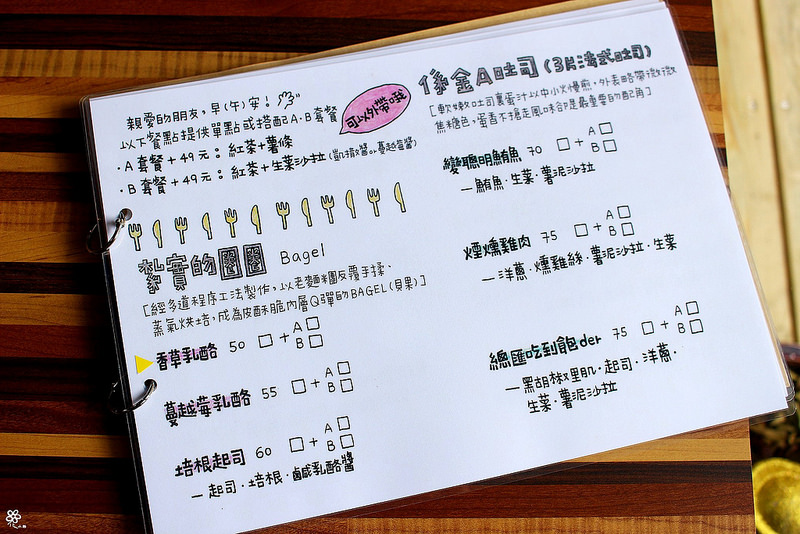 親愛的朋友，早(午)安！
以下餐點提供單點或搭配A.B套餐
·A 套餐＋49元：紅茶＋薯條
·B 套餐＋49元：紅茶＋生菜沙拉(凱撒醬or蔓越莓醬)
可以外帶哦
紮實的圈圈 Bagel
[經多道程序工法製作，以老麵粉團反覆手揉，
蒸氣烘培，成為皮酥脆內層Q彈的BAGEL(貝果)]
香草乳酪 50 □＋A□
B□
蔓越莓乳酪 55 □＋A□
B□
培根起司 60 □＋A□
B□
－起司·培根·鹹乳酪醬
係金A吐司(3片湯式吐司)
[軟嫩吐司裹蛋汁以中小火慢煎，外表略帶微微
焦糖色，蛋香不搶走風味卻是最重要的配角]
變聰明鮪魚 70 □＋A□
B□
－鮪魚·生菜·薯泥沙拉
煙燻雞肉 75 □＋A□
B□
－洋蔥·燻雞絲·薯泥沙拉·生菜
總匯吃到飽der 75 □＋A□
B□
－黑胡椒里肌·起司·洋蔥·
生菜·薯泥沙拉